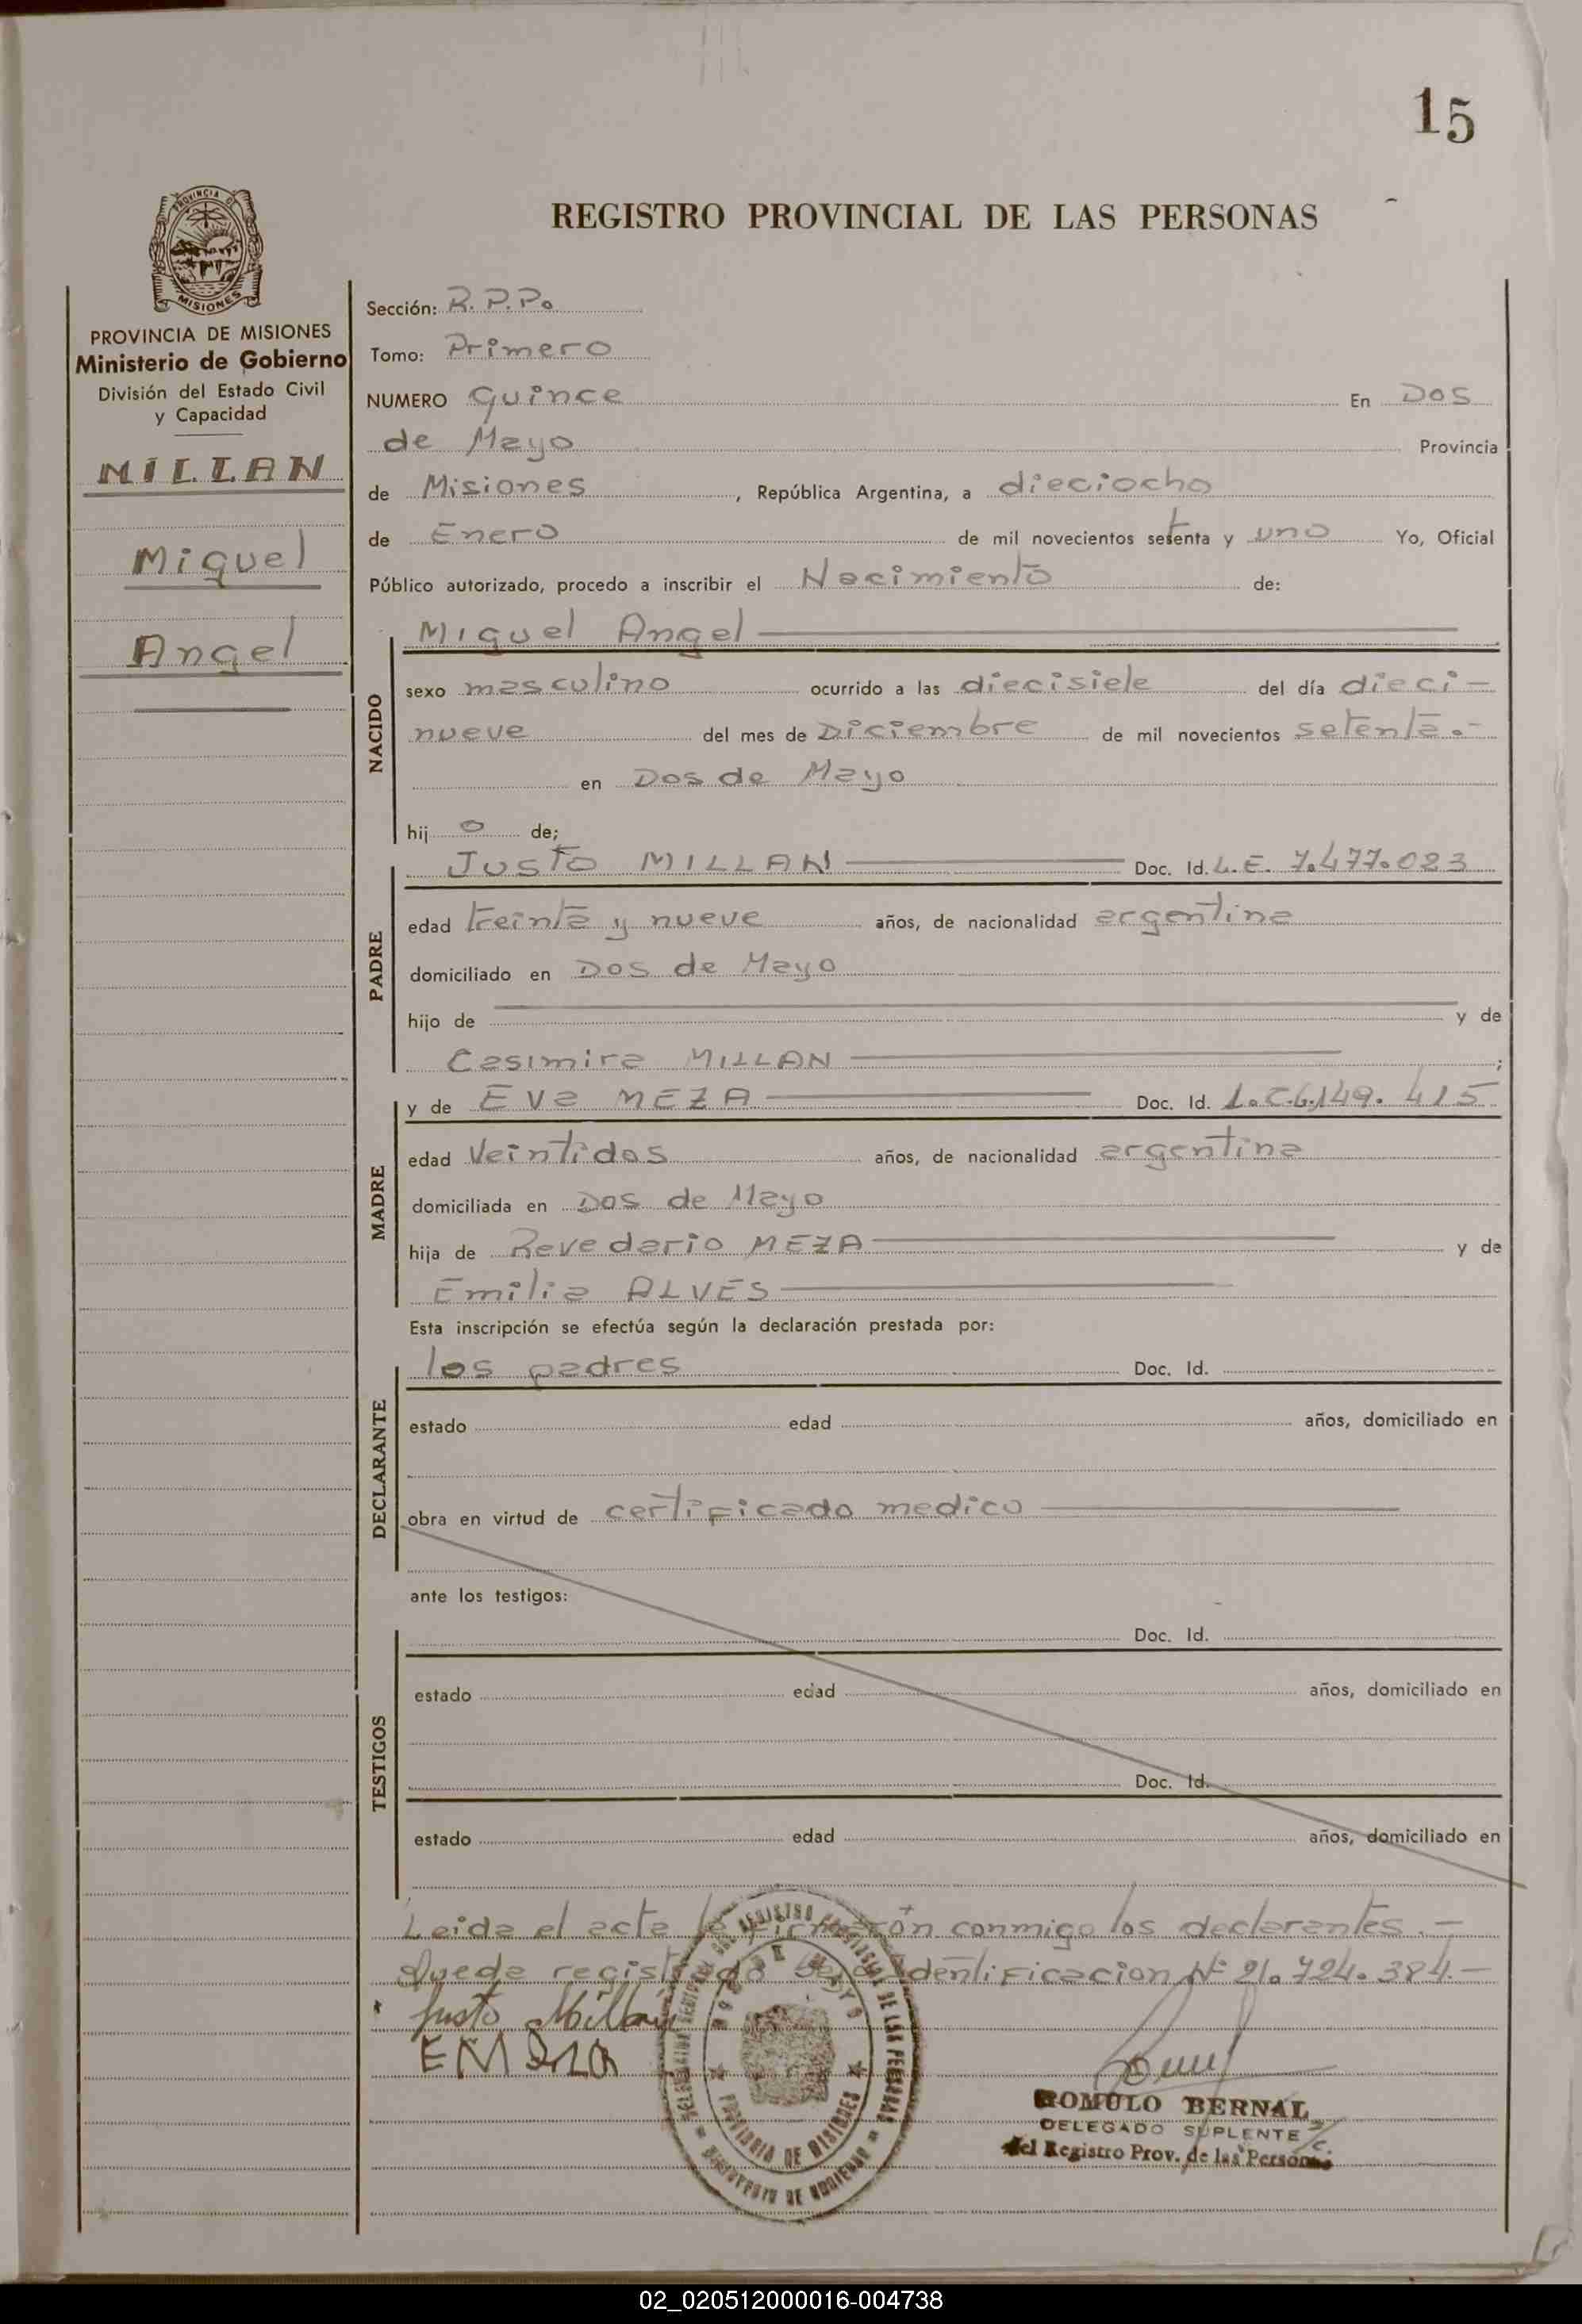 15
REGISTRO PROVINCIAL DE LAS PERSONAS
PROVINCIA DE MISIONES
Ministerio de Gobierno
División del Estado Civil
y Capacidad
MILLAN
Miguel
Angel
Sección: R.P.P.
Tomo: Primero
NUMERO Quince En Dos
de Mayo Provincia
de Misiones, República Argentina, a dieciocho
de Enero de mil novecientos setenta y uno Yo, Oficial
Público autorizado, procedo a inscribir el Nacimiento de:
NACIDO
Miguel Angel
sexo masculino ocurrido a las diecisiete del día dieci-
nueve del mes de Diciembre de mil novecientos setenta.-
en Dos de Mayo
hijo de;
PADRE
Justo MILLAN Doc. Id. L.E. 7.477.023
edad treinta y nueve años, de nacionalidad argentina
domiciliado en Dos de Mayo
hijo de y de
Casimira MILLAN ;
MADRE
y de Eva MEZA Doc. Id. L.C.6.149.415
edad Veintidos años, de nacionalidad argentina
domiciliada en Dos de Mayo
hija de Revedario MEZA y de
Emilia ALVES
Esta inscripción se efectúa según la declaración prestada por:
DECLARANTE
los padres Doc. Id.
estado edad años, domiciliado en
obra en virtud de certificado medico
ante los testigos:
TESTIGOS
Doc. Id.
estado edad años, domiciliado en
Doc. Id.
estado edad años, domiciliado en
Leida el acta la firmaron conmigo los declarantes.-
Queda registrado bajo identificacion Nº 21.724.384.-
Justo Millan
PROVINCIA DE MISIONES
MINISTERIO DE GOBIERNO
ROMULO BERNAL
DELEGADO SUPLENTE
del Registro Prov. de las Personas
02_020512000016-004738